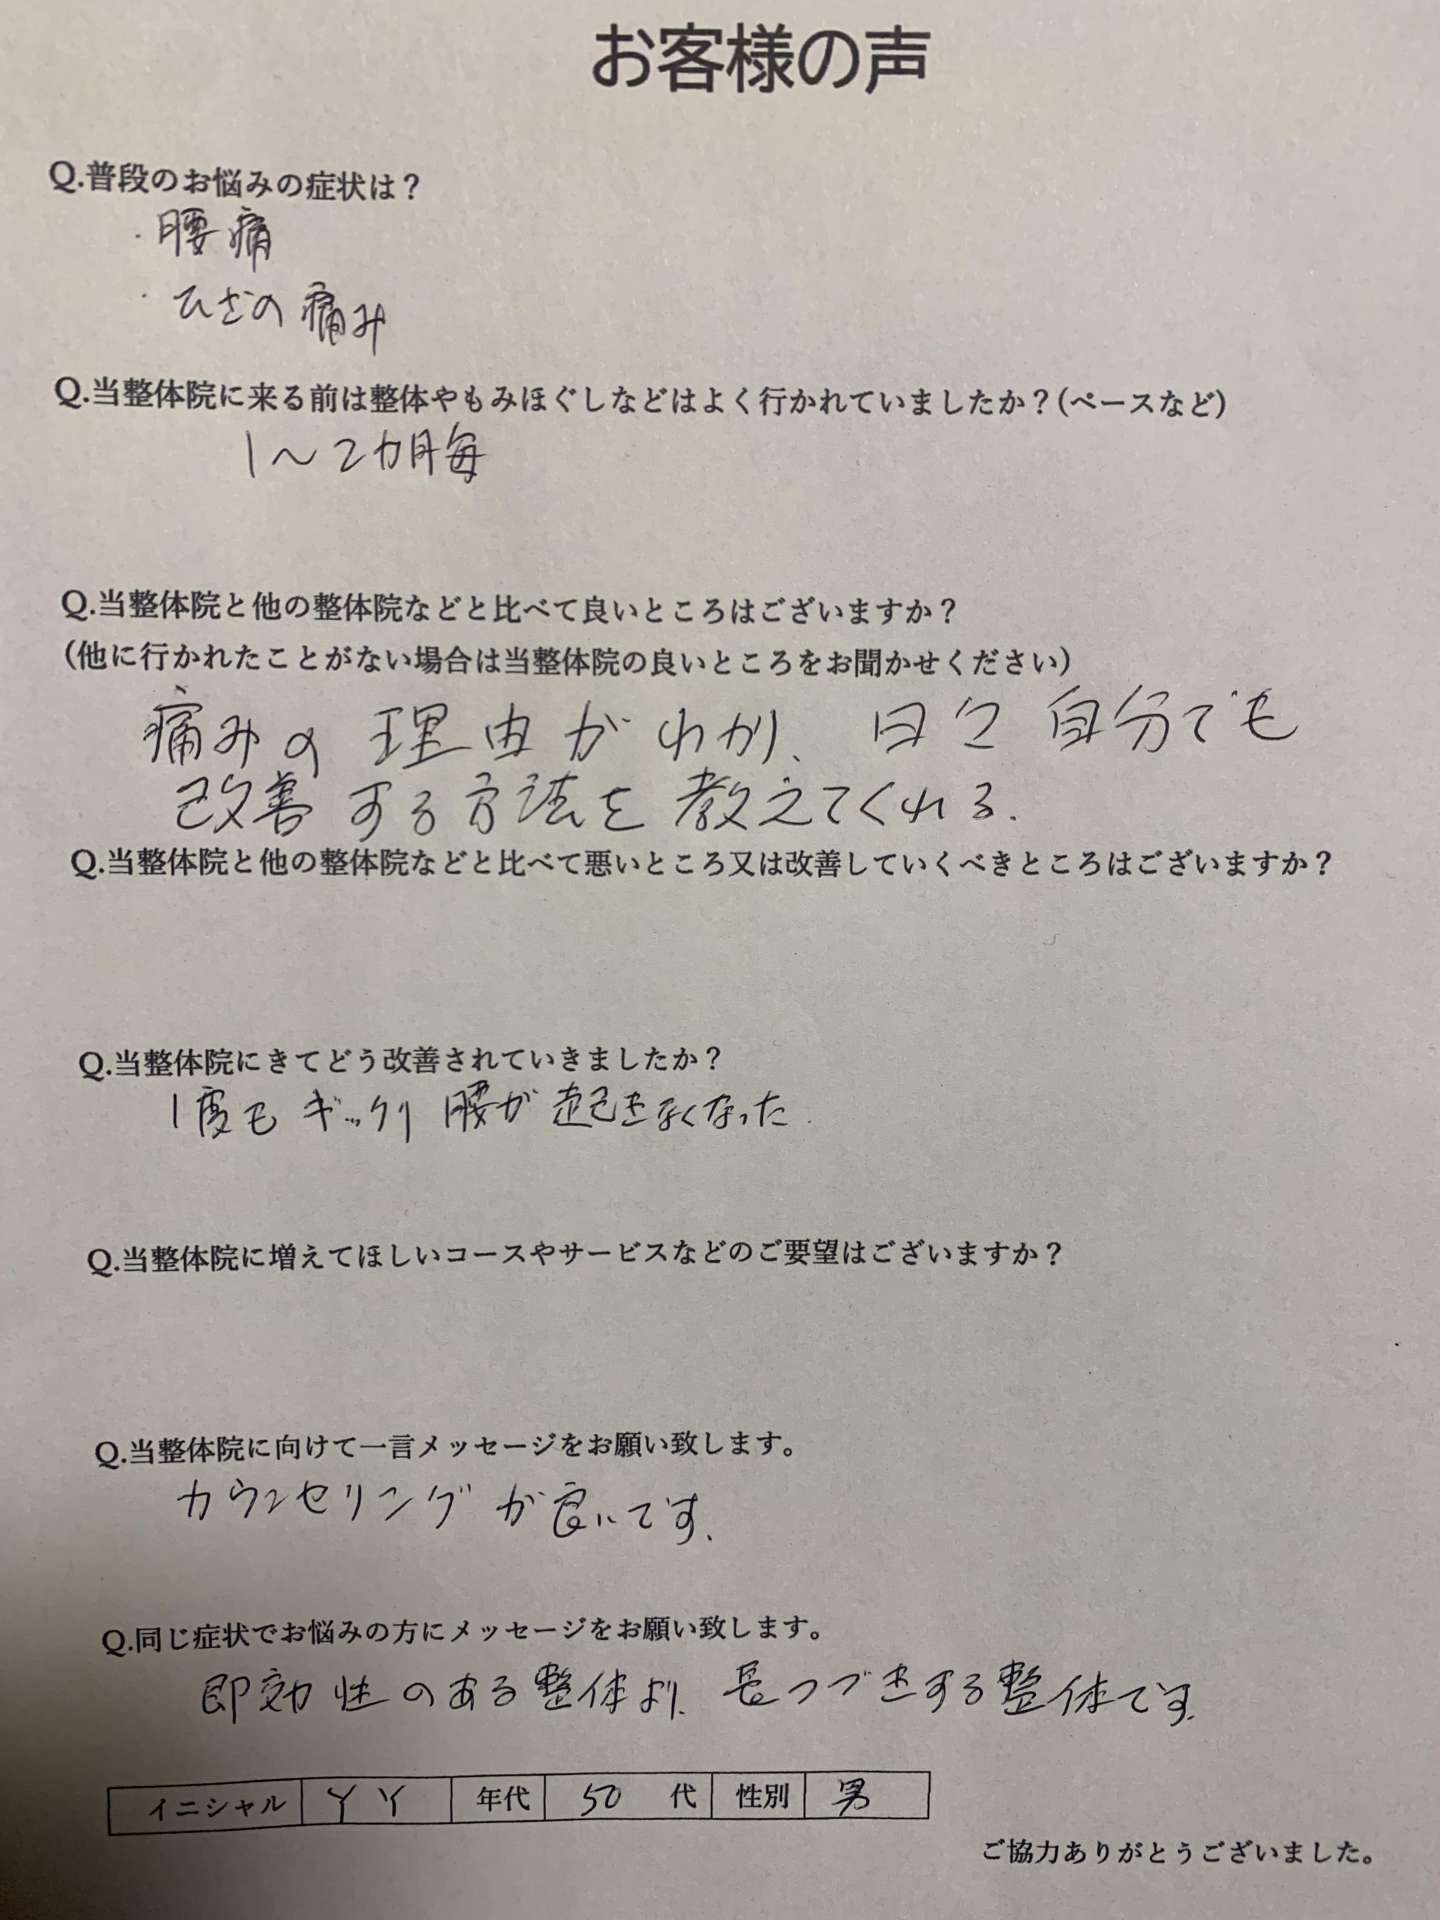 お客様の声
Q.普段のお悩みの症状は？
・腰痛
・ひざの痛み
Q.当整体院に来る前は整体やもみほぐしなどはよく行かれていましたか？(ペースなど)
1〜2カ月毎
Q.当整体院と他の整体院などと比べて良いところはございますか？
(他に行かれたことがない場合は当整体院の良いところをお聞かせください)
痛みの理由がわかり、日々自分でも
改善する方法を教えてくれる.
Q.当整体院と他の整体院などと比べて悪いところ又は改善していくべきところはございますか？
Q.当整体院にきてどう改善されていきましたか？
1度もギックリ腰が起きなくなった.
Q.当整体院に増えてほしいコースやサービスなどのご要望はございますか？
Q.当整体院に向けて一言メッセージをお願い致します。
カウンセリングが良いです.
Q.同じ症状でお悩みの方にメッセージをお願い致します。
即効性のある整体より、長つづきする整体です.
イニシャル YY 年代 50 代 性別 男
ご協力ありがとうございました。